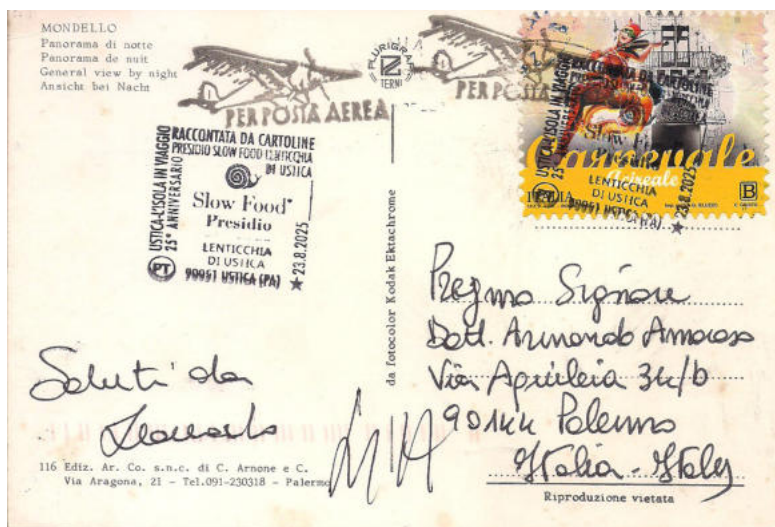 MONDELLO
Panorama di notte
Panorama de nuit
General view by night
Ansicht bei Nacht
PER POSTA AEREA
PLURIGRAF
TERNI
PER POSTA
USTICA-L'ISOLA IN VIAGGIO
25° ANNIVERSARIO
RACCONTATA DA CARTOLINE
PRESIDIO SLOW FOOD LENTICCHIA
DI USTICA
Slow Food®
Presidio
LENTICCHIA
DI USTICA
PT 90051 USTICA (PA) ★ 23.8.2025
RACCONTATA DA CARTOLINE
Slow
Carnevale
Acireale
ITALIA
B
LENTICCHIA
DI USTICA
90051 USTICA (PA) ★ 23.8.2025
da fotocolor Kodak Ektachrome
Preg.mo Signore
Dott. Armando Amoroso
Via Aquileia 34/b
90144 Palermo
Italia - Italy
Saluti da
116 Ediz. Ar. Co. s.n.c. di C. Arnone e C.
Via Aragona, 21 - Tel.091-230318 - Palermo
Riproduzione vietata